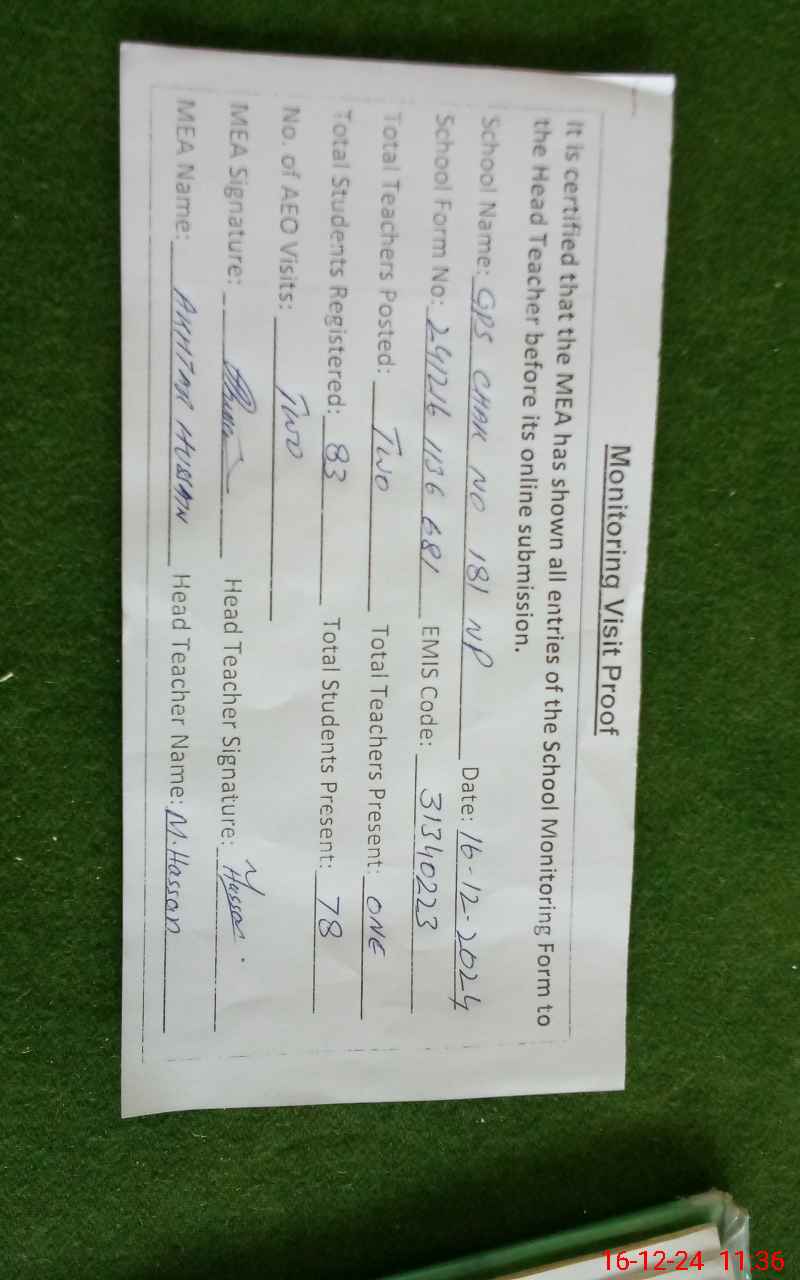 Monitoring Visit Proof
It is certified that the MEA has shown all entries of the School Monitoring Form to
the Head Teacher before its online submission.
School Name: GPS CHAK NO 181 NP Date: 16-12-2024
School Form No: 241216 1136 681 EMIS Code: 31340223
Total Teachers Posted: TWO Total Teachers Present: ONE
Total Students Registered: 83 Total Students Present: 78
No. of AEO Visits: TWO
MEA Signature: Head Teacher Signature: M Hassan
MEA Name: AKHTAR HUSSAIN Head Teacher Name: M.Hassan
16-12-24 11:36